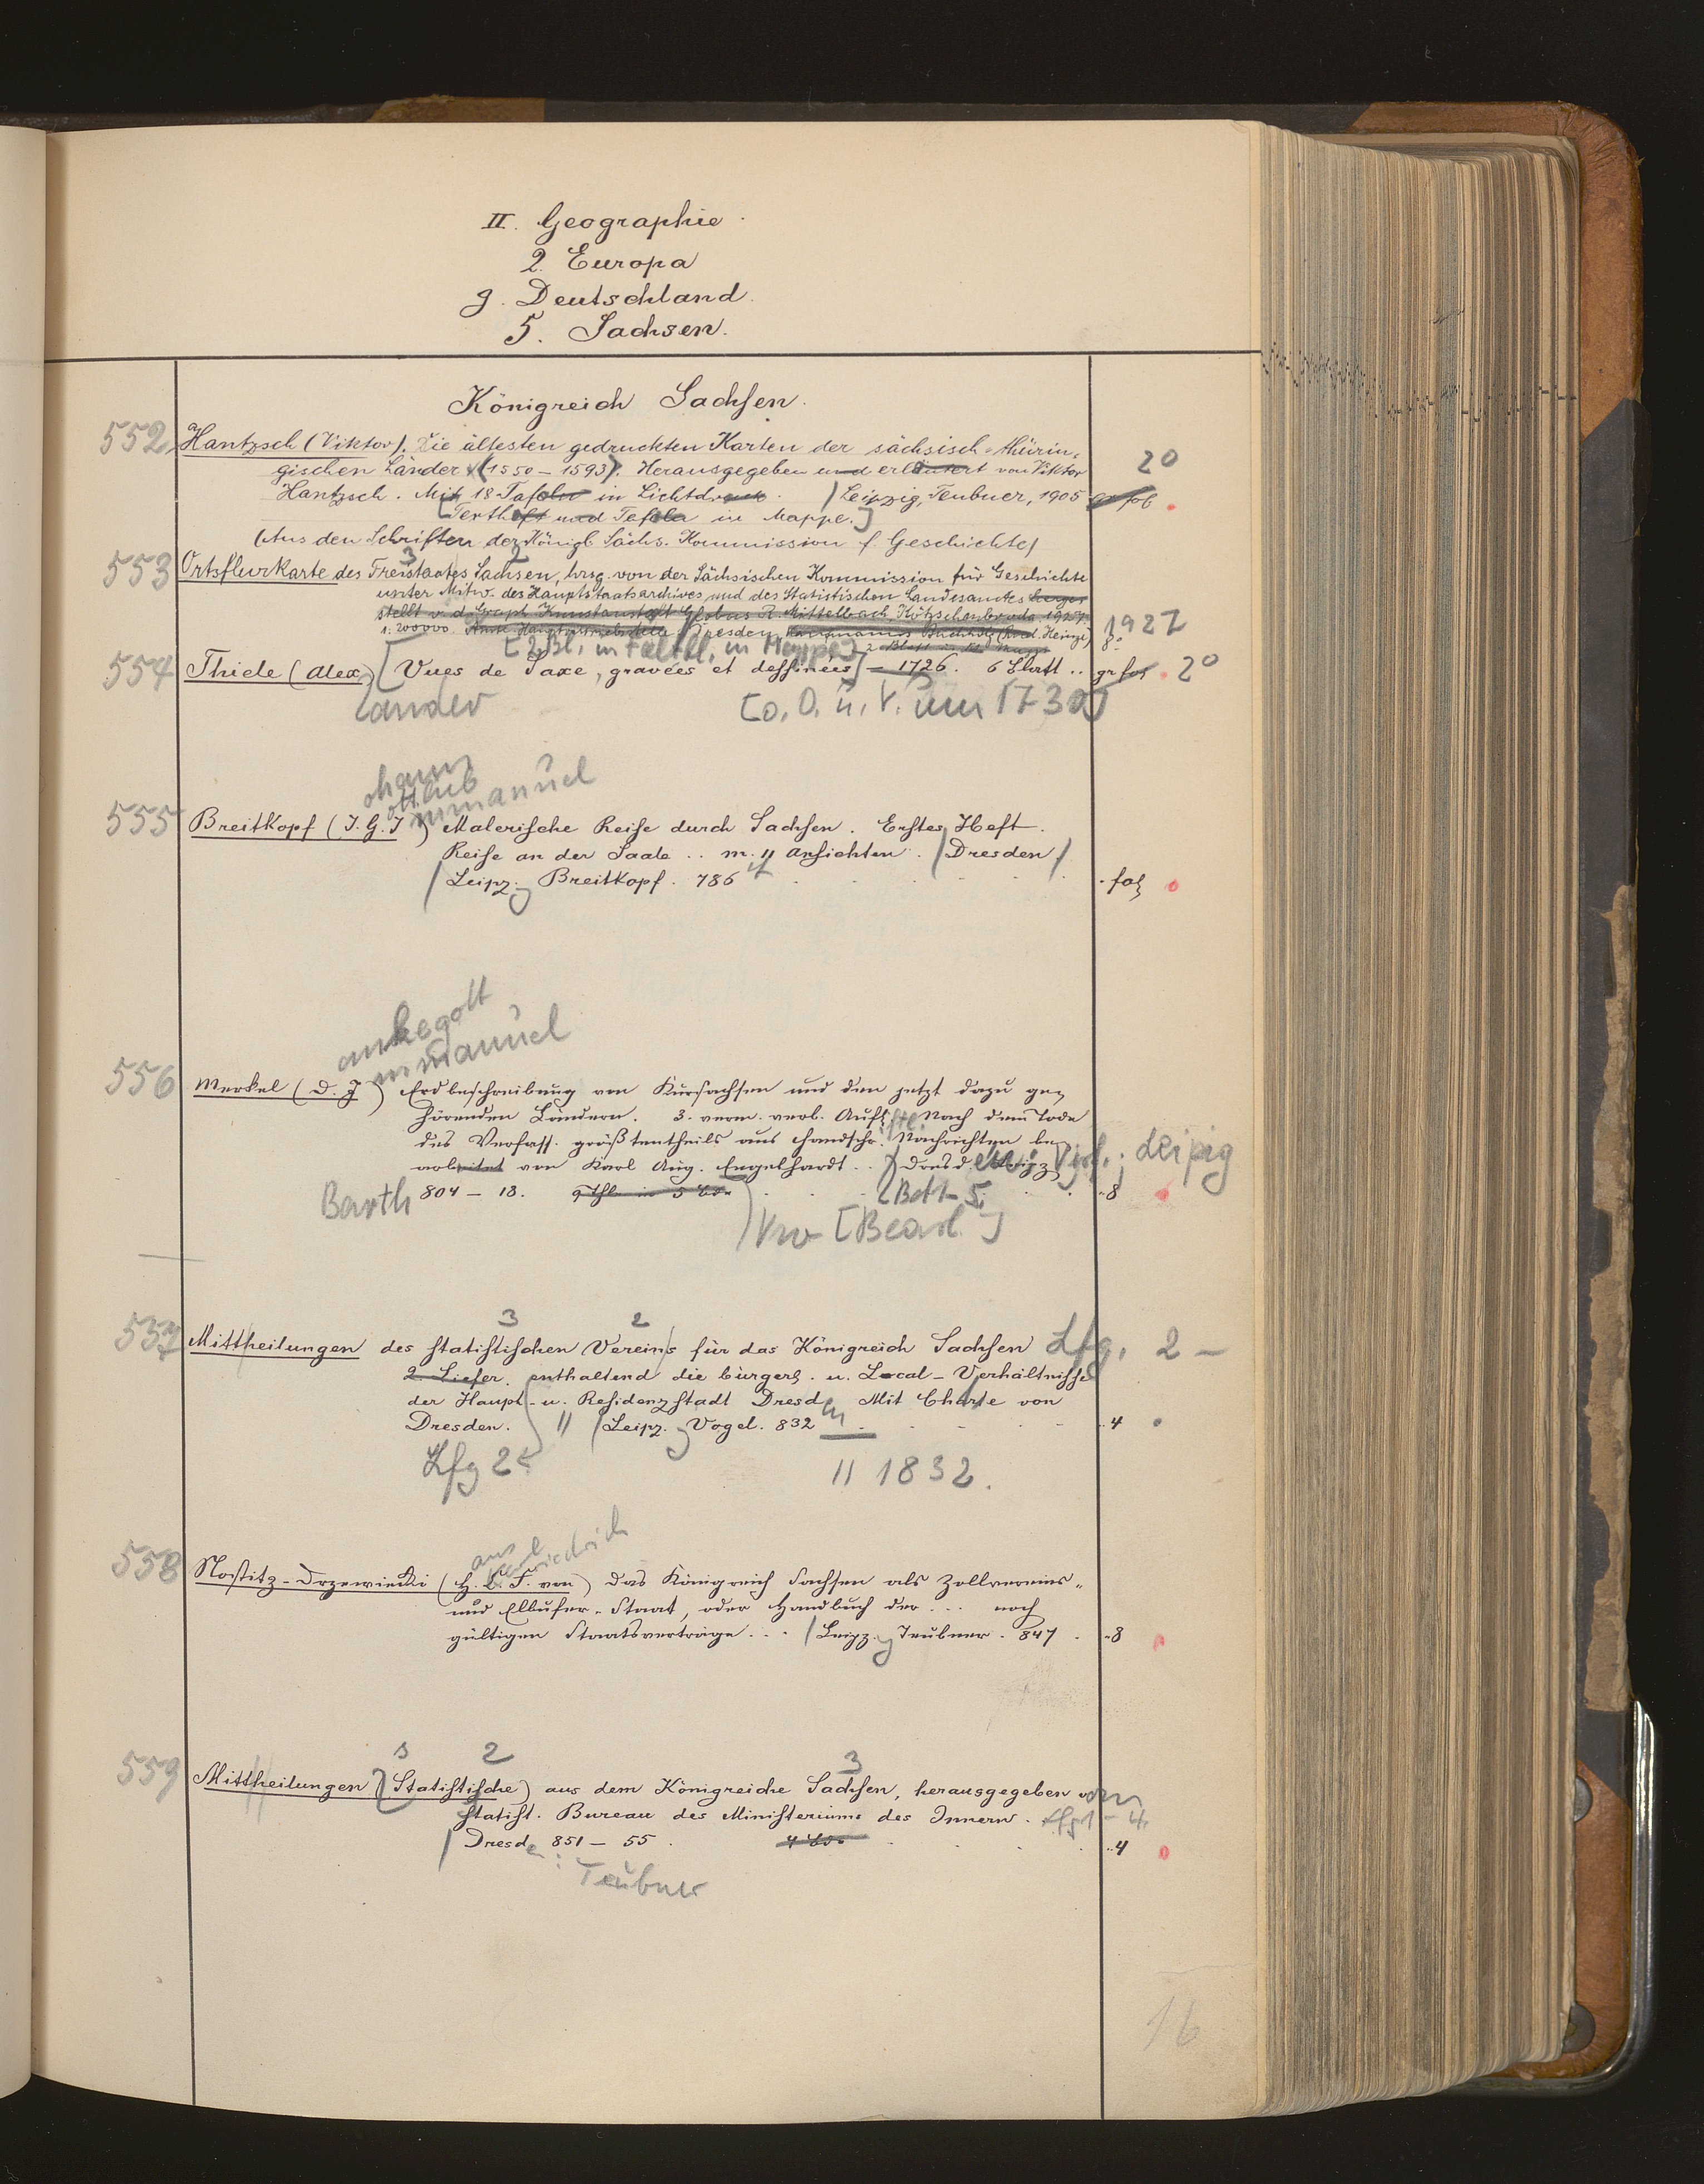 II. Geographie
2. Europa
g. Deutschland.
5. Sachsen.
Königreich Sachsen.
552 Hantzsch (Viktor). Die ältesten gedruckten Karten der sächsisch-thürin-
gischen Länder (1550-1593). Herausgegeben und erläutert von Viktor 2°
Hantzsch. Mit 18 Tafeln in Lichtdruck. Leipzig, Teubner, 1905 gr fol
[Textheft und Tafeln in Mappe.]
(Aus den Schriften der Königl. Sächs. Kommission f. Geschichte)
3 2
553 Ortsflurkarte des Freistaates Sachsen, hrsg. von der Sächsischen Kommission für Geschichte
unter Mitw. des Hauptstaatsarchives und des Statistischen Landesamtes herge-
stellt v. d. Graph. Kunstanstalt Globus R. Mittelbach, Kötzschenbroda. 1927.
1:200000. Dresden, Buchhdlg (Heinze) 1927 8°
[2 Bl. in Mappe] 2 Blatt in
554 Thiele (Alex) [Vues de Saxe, gravées et dessinées] - 1726. 6 Blatt .. gr fol 2°
ander [o. O. u. V. um 1730]
ohann
ottlieb
mmanuel
555 Breitkopf (J. G. I) Malerische Reise durch Sachsen. Erstes Heft.
Reise an der Saale .. m. 11 Ansichten. (Dresden)
Leipz. Breitkopf. 786 fol
ankegott
mmanuel
556 Merkel (D. J) Erdbeschreibung von Kursachsen und den jetzt dazu ge-
hörenden Ländern. 3. verm. verb. Aufl. Nach dem Tode
des Verfass. größtentheils aus handschr. Nachrichten be-
arbeitet von Karl Aug. Engelhardt .. Dresd. Leipzig
Barth 804 - 18. 9 Thle in 5 Bdn [Bd 1-5. 8
[Bearb.]
3 2
557 Mittheilungen des statistischen Vereins für das Königreich Sachsen Lfg. 2 -
2. Liefer. enthaltend die bürgerl. u. Local-Verhältnisse
der Haupt- u. Residenzstadt Dresden Mit Charte von
Dresden. Leipz. Vogel. 832 4
Lfg 2. 1832.
riedrich
558 Nostitz-Drzewiecki (H. C. F. von) Das Königreich Sachsen als Zollvereins-
und Elbufer-Staat, oder Handbuch der ... noch
gültigen Staatsverträge ... Leipz. Teubner. 847. 8
2 3
559 Mittheilungen (Statistische) aus dem Königreiche Sachsen, herausgegeben vom
statist. Bureau des Ministeriums des Innern. Lfg 1 - 4.
Dresden 851 - 55. 4 Bde 4
: Teubner
16